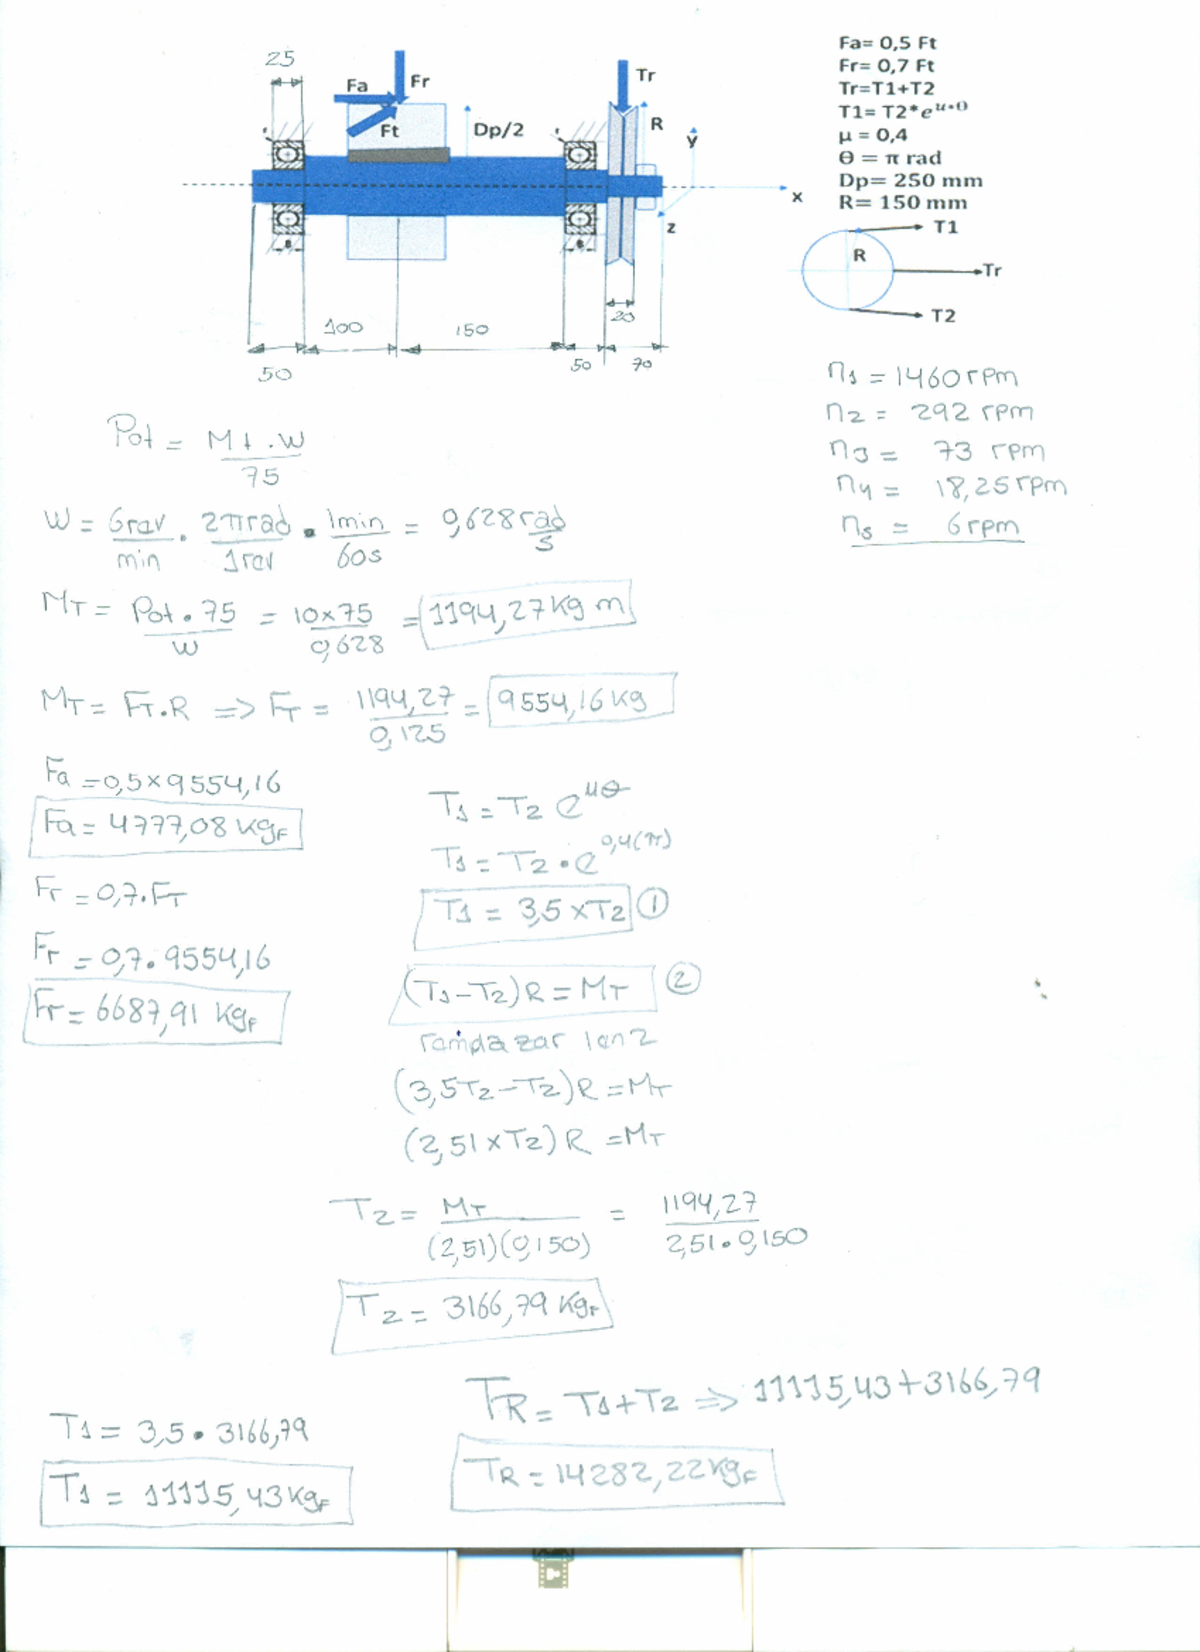 25
Fa
Fr
Ft
Dp/2
Tr
R
y
x
z
B
B
100
150
20
50
50
70
Fa= 0,5 Ft
Fr= 0,7 Ft
Tr=T1+T2
T1= T2*e^{u*θ}
μ = 0,4
Θ = π rad
Dp= 250 mm
R= 150 mm
T1
R
Tr
T2
n1 = 1460 rpm
n2 = 292 rpm
n3 = 73 rpm
n4 = 18,25 rpm
n5 = 6 rpm
Pot = Mt . W / 75
W = 6rev/min . 2π rad/1rev . 1min/60s = 0,628 rad/s
MT = Pot . 75 / W = 10x75 / 0,628 = 1194,27 Kg m
MT = FT.R => FT = 1194,27 / 0,125 = 9554,16 kg
Fa = 0,5 x 9554,16
Fa = 4777,08 KgF
Fr = 0,7.FT
Fr = 0,7 . 9554,16
Fr = 6687,91 KgF
T1 = T2 e^{uθ}
T1 = T2 . e^{0,4(π)}
T1 = 3,5 x T2 ①
(T1-T2) R = MT ②
1 en 2
(3,5T2-T2) R = MT
(2,51 x T2) R = MT
T2 = MT / (2,51)(0,150) = 1194,27 / 2,51 . 0,150
T2 = 3166,79 KgF
TR = T1+T2 => 11115,43+3166,79
TR = 14282,22 KgF
T1 = 3,5 . 3166,79
T1 = 11115,43 KgF